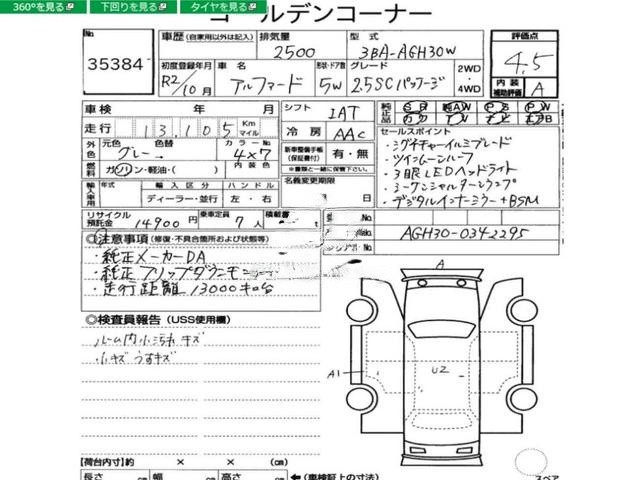 360°を見る 下回りを見る タイヤを見る
ゴールデンコーナー
No. 35384
車歴 (自家用以外は記入) 排気量 2500 型式 3BA-AGH30W
評価点 4.5
初度登録年月 R2/10月 車名 アルファード 形状・ドア数 5W グレード 2.5SCパッケージ 2WD・4WD
内装補助評価 A
車検 年 月
シフト IAT
純正品 SR 純AW PS PW
走行 13,105 Km マイル
冷房 AAC
外色 元色 グレー 色替 カラーNo. 4×7
新車整備手帳(保証書付) 有・無
※書類と一緒に保管下さい。
セールスポイント
・ツインムーンルーフ
・3眼LEDヘッドライト
・シーケンシャルターンランプ
・デジタルインナーミラー+BSM
燃料 ガソリン・軽油・( ) 内装色
名義変更期限
日
輸入車用 年式 輸入区分 ハンドル
ディーラー・並行 左・右
リサイクル預託金 14900円 乗車定員 7人 積載量
AGH30-0342295
◎注意事項 (修復・不具合箇所および状態等)
・純正メーカーDA
・純正フリップダウンモニター
・走行距離 13000キロ台
◎検査員報告 (USS使用欄)
ルーム内小汚れ キズ
小キズ うすキズ
A
A1
U2
【荷台内寸】約 × × (cm)
長さ (cm) 幅 (cm) 高さ (cm)
(車検証上の寸法)
スペア